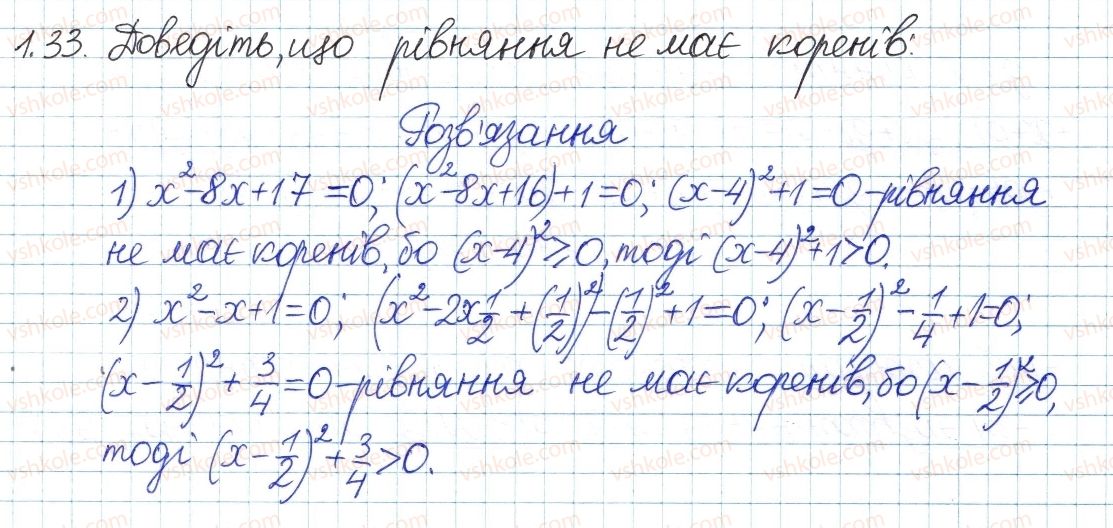 1.33. Доведіть, що рівняння не має коренів:
Розв'язання
1) x²-8x+17=0; (x²-8x+16)+1=0; (x-4)²+1=0-рівняння
не має коренів, бо (x-4)²≥0, тоді (x-4)²+1>0.
2) x²-x+1=0; (x²-2x1/2+(1/2)²)-(1/2)²+1=0; (x-1/2)²-1/4+1=0;
(x-1/2)²+3/4=0-рівняння не має коренів, бо (x-1/2)²≥0,
тоді (x-1/2)²+3/4>0.